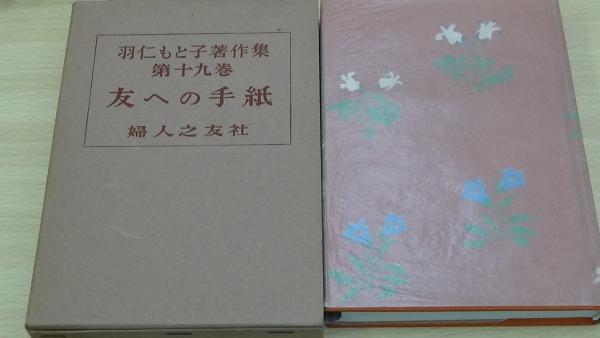 羽仁もと子著作集
第十九巻
友への手紙
婦人之友社